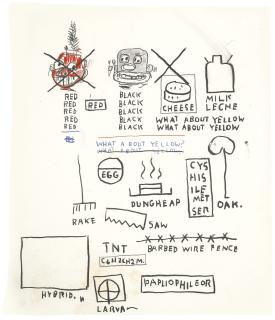 RED
RED
RED
RED
RED
RED
BLACK
BLACK
BLACK
BLACK
BLACK
CHEESE
MILK
LECHE
WHAT ABOUT YELLOW
WHAT ABOUT YELLOW
WHAT ABOUT YELLOW?
WHAT ABOUT YELLOW.
EGG
DUNGHEAP
CYS
HIS
ILE
MET
SER
OAK.
RAKE
SAW
TNT
BARBED WIRE FENCE
HYBRID.
LARVA
PAPLIOPHILEOR